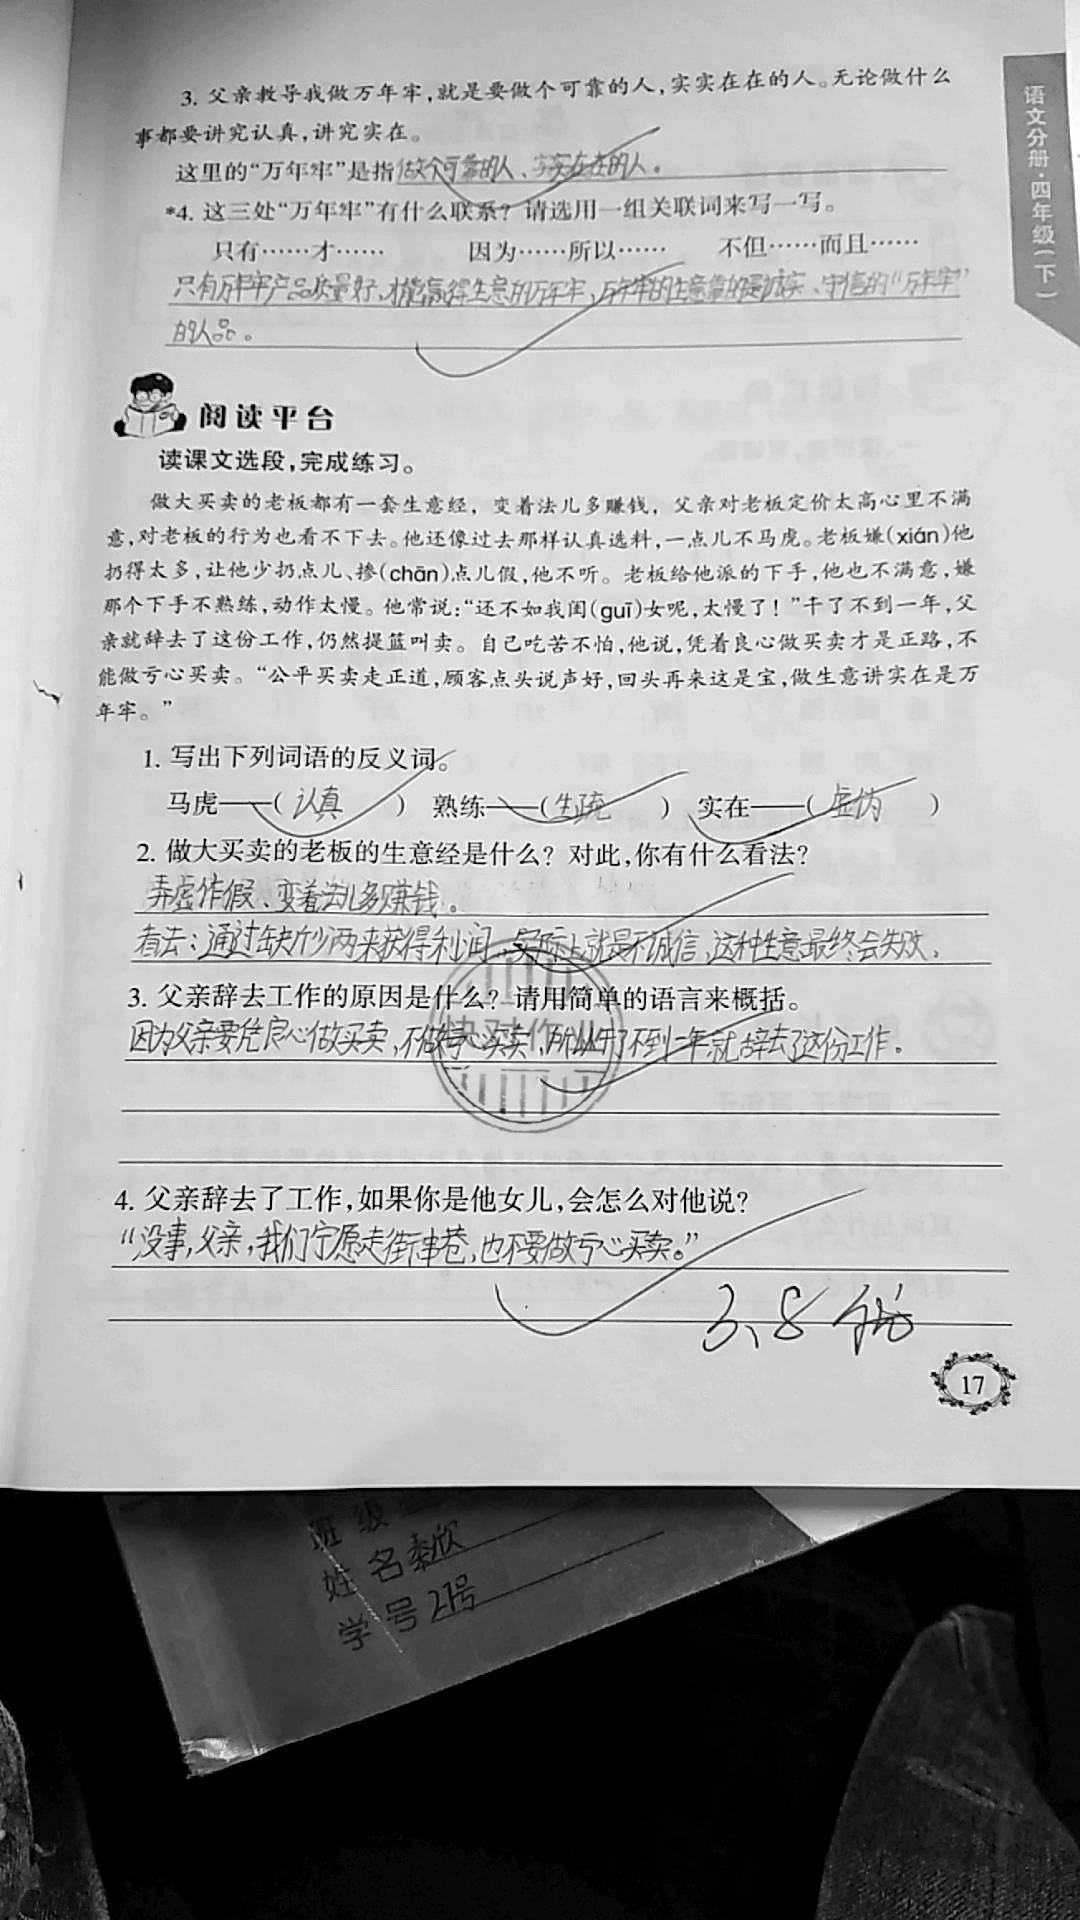 语文分册·四年级(下)
3. 父亲教导我做万年牢,就是要做个可靠的人,实实在在的人。无论做什么
事都要讲究认真,讲究实在。
这里的“万年牢”是指做个可靠的人、实实在在的人。
*4. 这三处“万年牢”有什么联系?请选用一组关联词来写一写。
只有……才…… 因为……所以…… 不但……而且……
只有万年牢产品质量好,才能赢得生意的万年牢,万年牢的生意靠的是诚实、守信的“万年牢”
的人品。
阅读平台
读课文选段,完成练习。
做大买卖的老板都有一套生意经,变着法儿多赚钱,父亲对老板定价太高心里不满
意,对老板的行为也看不下去。他还像过去那样认真选料,一点儿不马虎。老板嫌(xián)他
扔得太多,让他少扔点儿、掺(chān)点儿假,他不听。老板给他派的下手,他也不满意,嫌
那个下手不熟练,动作太慢。他常说:“还不如我闺(guī)女呢,太慢了!”干了不到一年,父
亲就辞去了这份工作,仍然提篮叫卖。自己吃苦不怕,他说,凭着良心做买卖才是正路,不
能做亏心买卖。“公平买卖走正道,顾客点头说声好,回头再来这是宝,做生意讲实在是万
年牢。”
1. 写出下列词语的反义词。
马虎——( 认真 ) 熟练——( 生疏 ) 实在——( 虚伪 )
2. 做大买卖的老板的生意经是什么?对此,你有什么看法?
弄虚作假、变着法儿多赚钱。
看法:通过缺斤少两来获得利润,实际上就是不诚信,这种生意最终会失败。
3. 父亲辞去工作的原因是什么?请用简单的语言来概括。
因为父亲要凭良心做买卖,不做亏心买卖,所以干了不到一年就辞去了这份工作。
快对作业
4. 父亲辞去了工作,如果你是他女儿,会怎么对他说?
“没事,父亲,我们宁愿走街串巷,也不要做亏心买卖。”
3、8
17
班级
姓名 秦欣
学号 27号